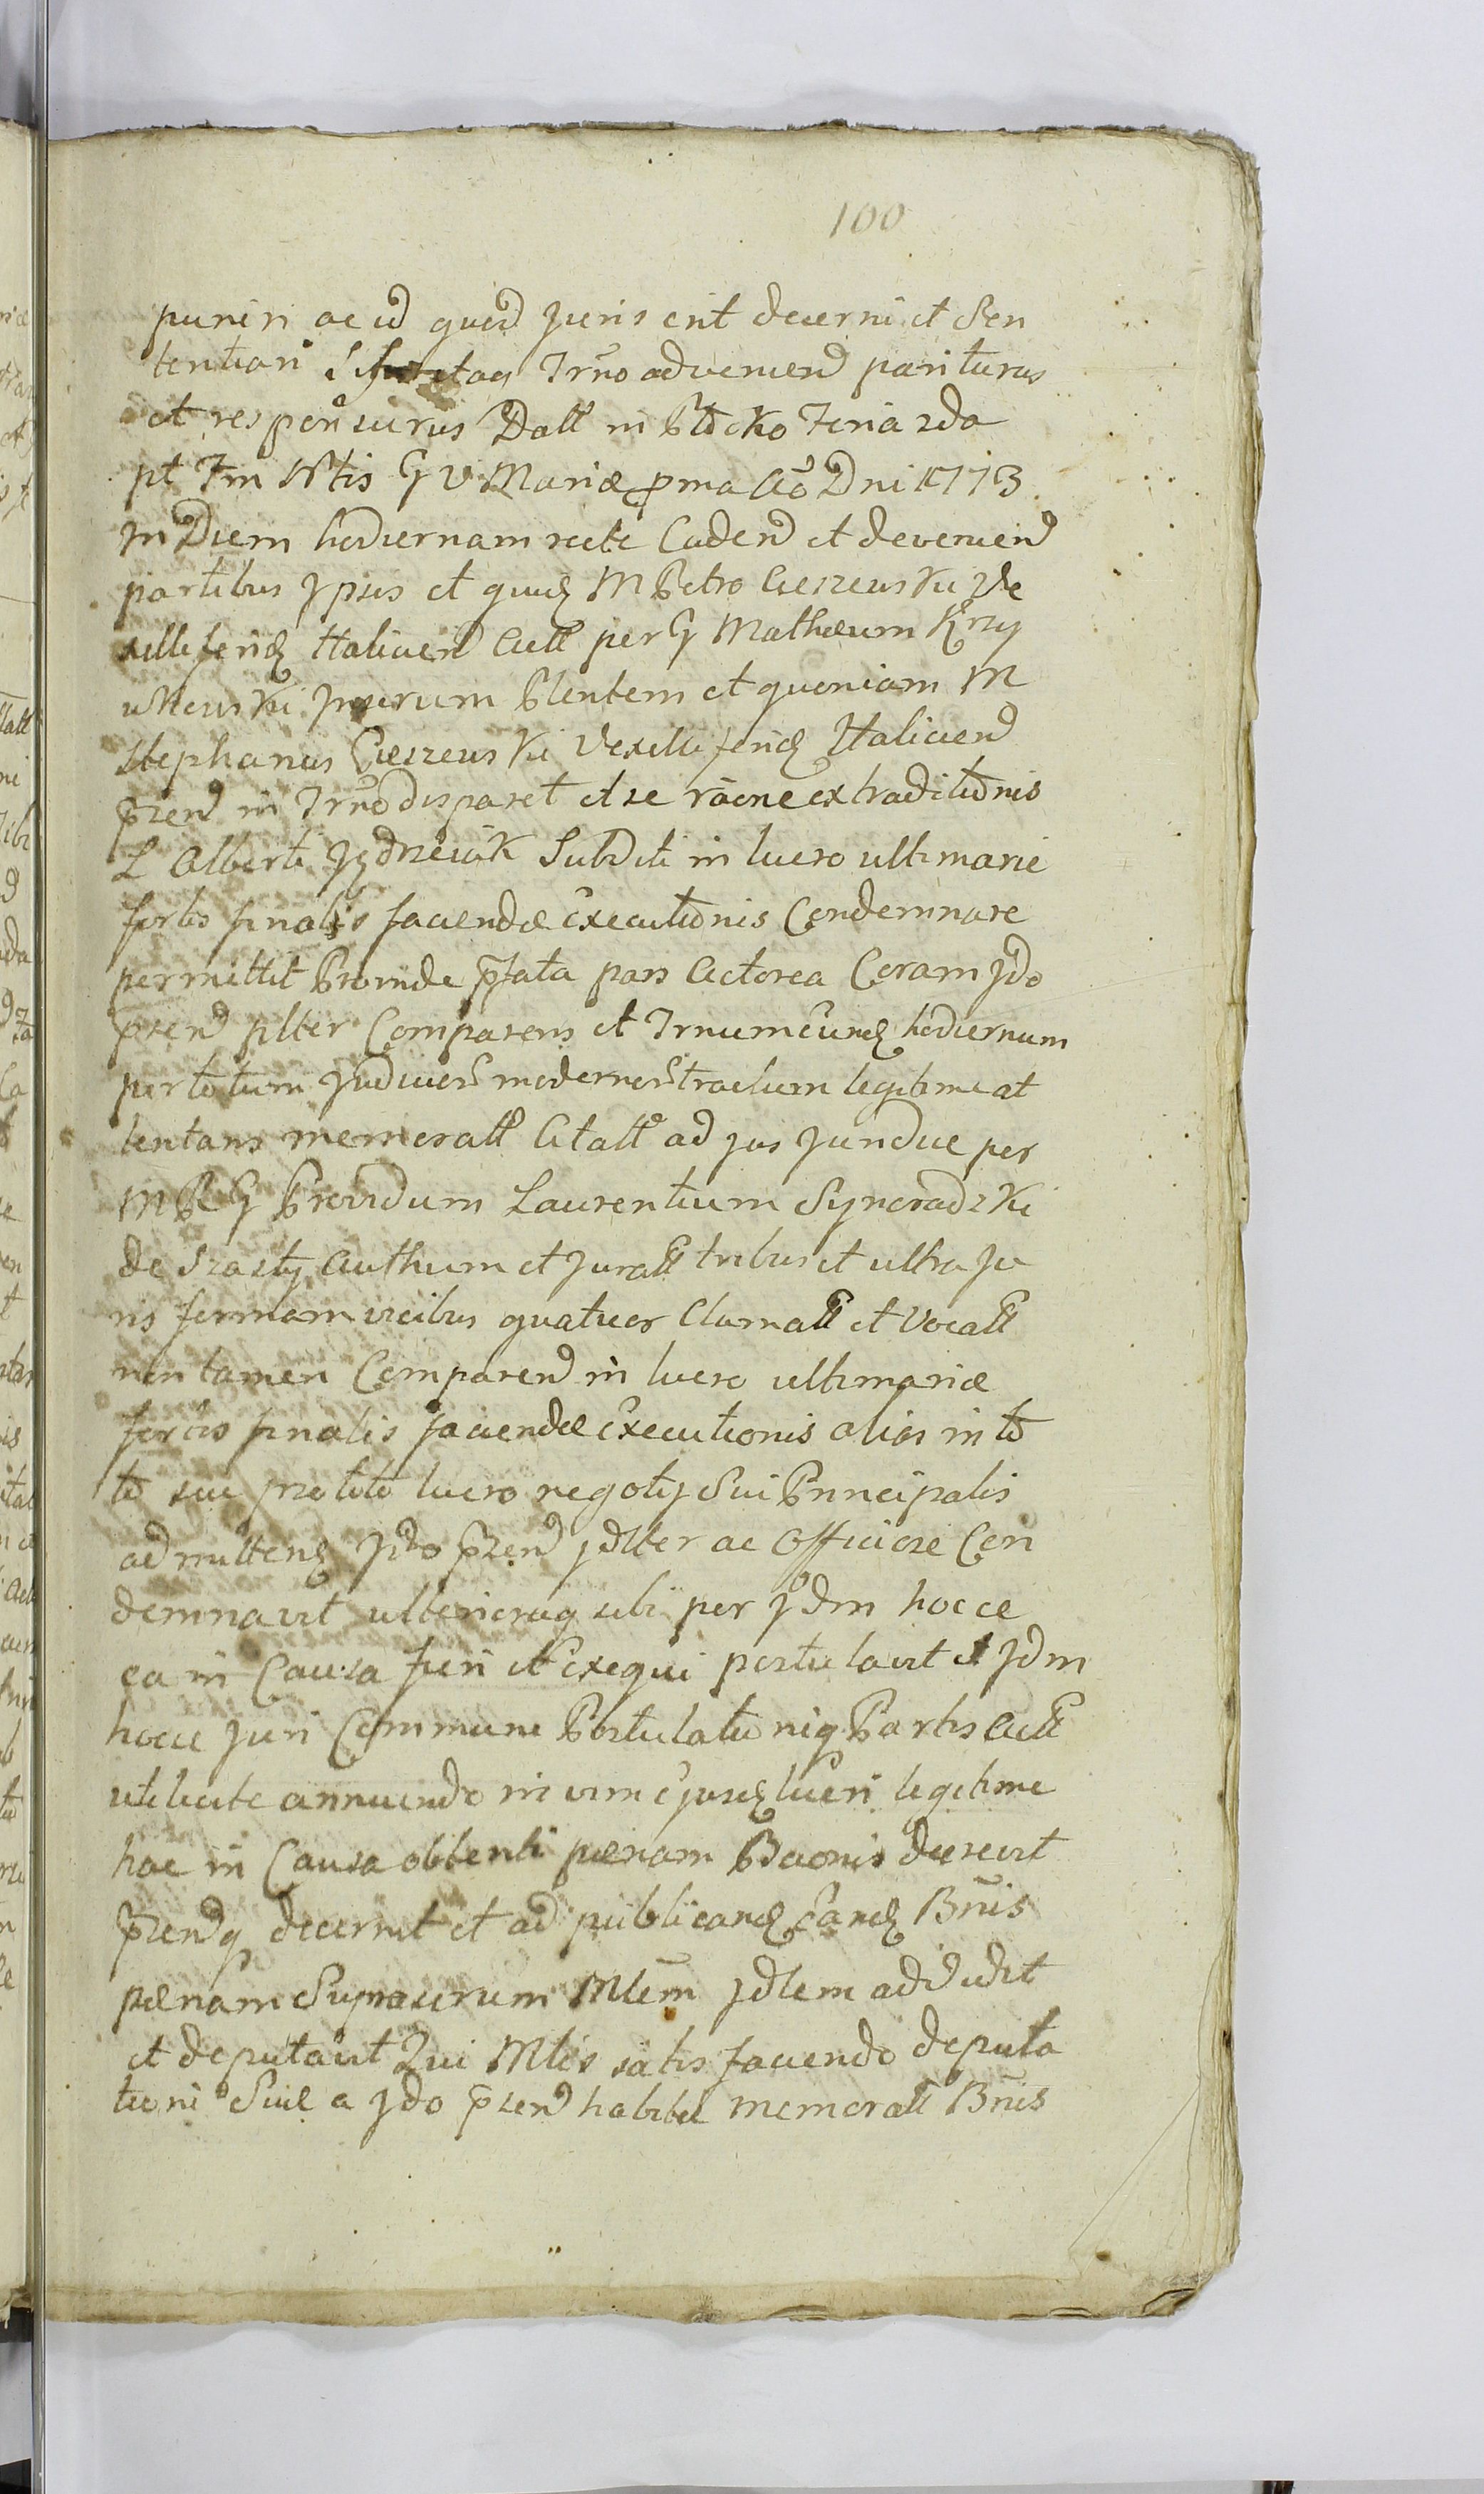 100
puniri ac id quod Juris erit decerni et Sen
tentiari Tr̃no advenien̄ pariturus
et responsurus Datt in Płocko Feria 2da
pt Fm Ntis G V Mariæ pma Aõ Dni 1773
in Diem hodiernam recte Caden̄ et devenien̄
partibus Ipsis et quidꝫ M Petro Cieszewski Ve
xilliferidꝫ Halicien̄ Actt per G Mathæum Krzy
wkowski Ipsorum Plentem et quoniam M
Stephanus Cieszewski Vexilliferidꝫ Halicien̄
p̃sen̄ in Tr̃no disparet et se rãone extraditionis
L Alberti Jędrzeiak Subditi in lucro ultimarie
fortis finalis faciendæ Executionis Condemnare
permittit Proinde p̃fata pars Actorea Coram Jdo
p̃sen̄ plter Comparens et Trnum eundꝫ hodiernum
per totum Judicior̃ modernor̃ tractum legitime at
tentans memoratt Citatt ad jus Jundve per
M R G Providum Laurentium Syncradzki
de Szasty Authum et Juratt tribus et ultra Ju
ris formam vicibus quatuor Clamatt et Vocatt
non tamen Comparen̄ in lucro ultimariæ
forcis finalis faciendæ Executionis alias in to
to seu pro toto lucro negotij Sui Principalis
admittendꝫ Jdo p̃sen̄ jdlter ac Officiose Con
demnavit ulterioraq sibi per Jdm hocce
ea in Causa fieri et Exequi postulavit et Jdm
hocce Juri Communi Postulationiq Partis Actt
uti licite annuendo in vim ejusdꝫ lucri legitime
hac in Causa obtenti pænam Bãonis decrevit
p̃sen̄q decernit et ad publicandꝫ eandꝫ Bñis
pænam Suprascrum Mlem̃ Jdlem addidit
et deputavit Qui Mlis satis faciendo deputa
tioni Suæ a Jdo p̃sen̄ habitæ memoratt Bñis